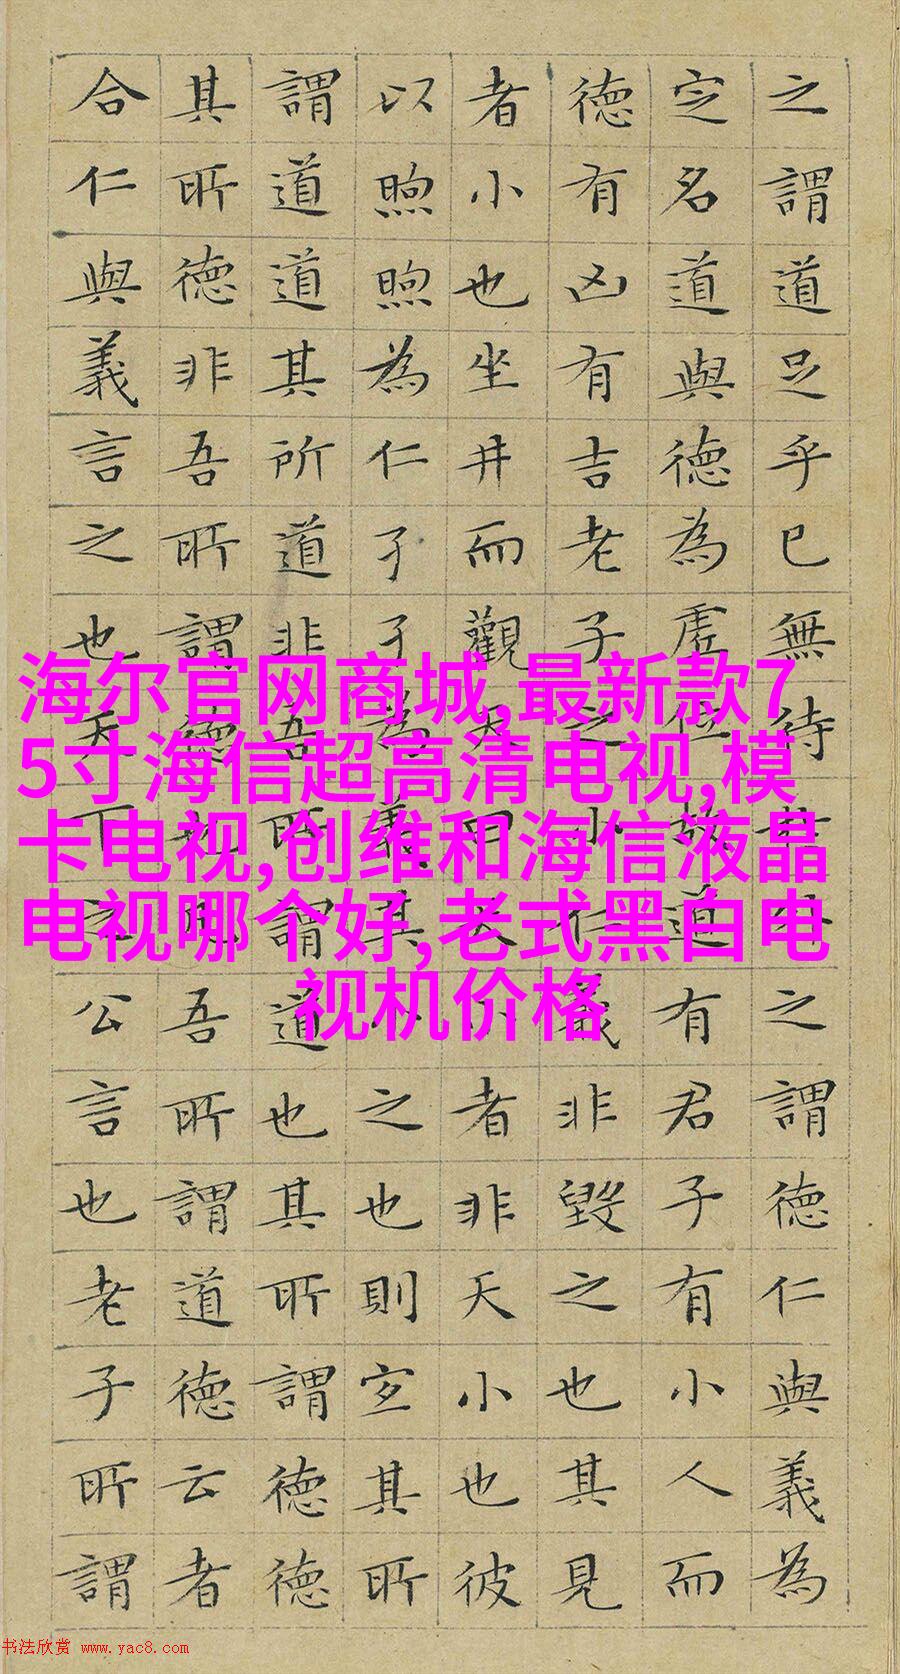 之謂道足乎已無待於外之謂德仁與義為
定名道與德為虛位故道有君子有小人而
德有凶有吉老子之小仁義非毀之也其見
者小也坐井而觀天曰天小者非天小也彼
以煦煦為仁孑孑為義其小之也則宜其所
謂道道其所道非吾所謂道也其所謂德德
其所德非吾所謂德也凡吾所謂道德云者
合仁與義言之也天下之公言也老子所謂
海尔官网商城,最新款7
5寸海信超高清电视,模
卡电视,创维和海信液晶
电视哪个好,老式黑白电
视机价格
书法欣赏 www.yac8.com